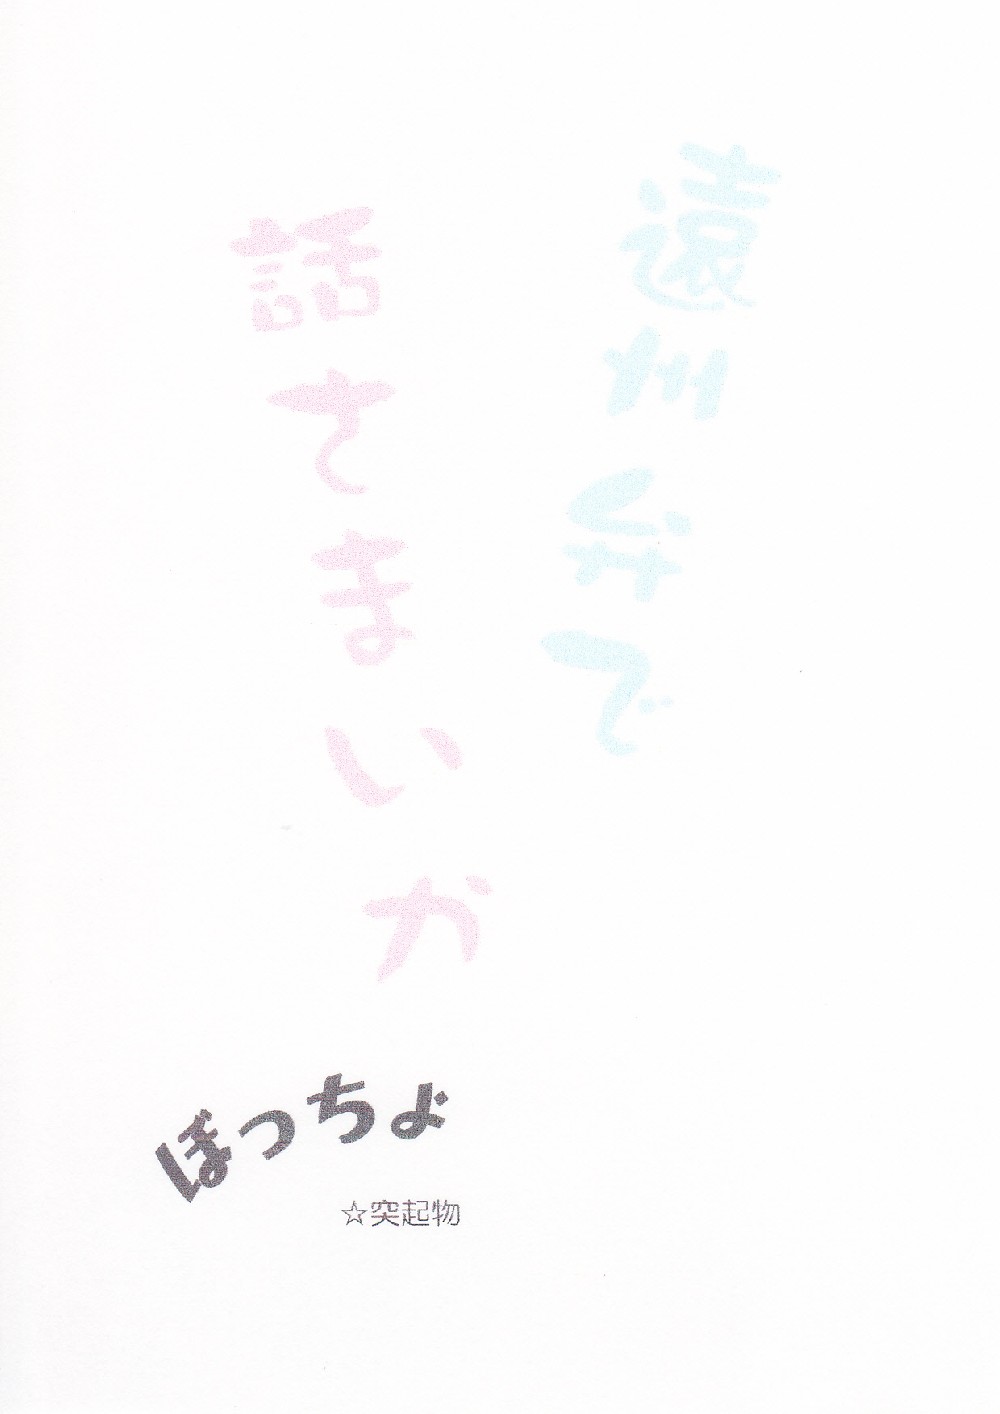 遠州弁で
話てまいか
ぼっちょ
☆突起物